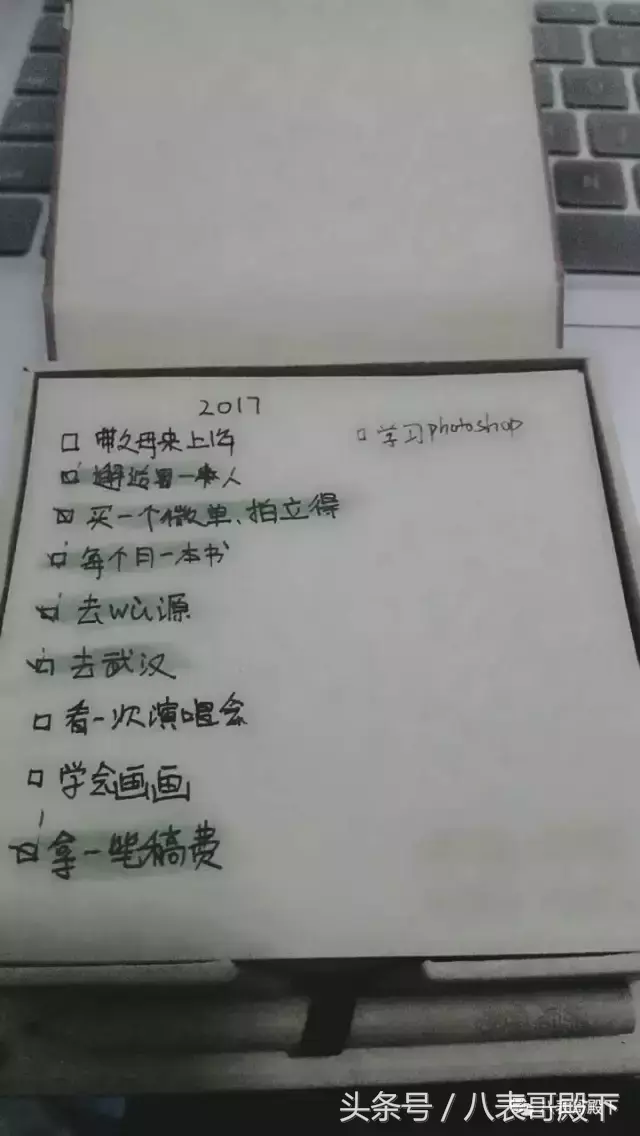 2017
□ 带父母来上海
□ 学习photoshop
☑ 邂逅另一本人
☑ 买一个微单、拍立得
☑ 每个月一本书
☑ 去wu源
☑ 去武汉
□ 看一次演唱会
□ 学会画画
☑ 拿一笔稿费
头条号／八表哥殿下